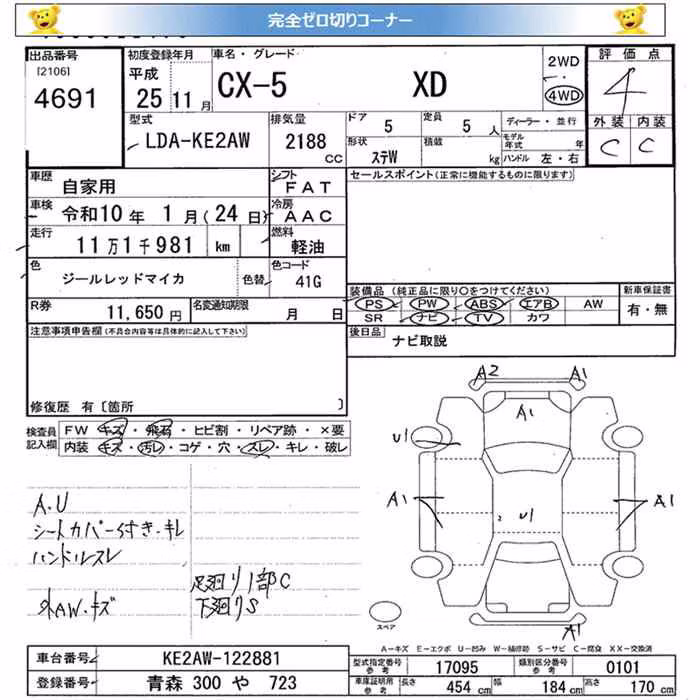 完全ゼロ切りコーナー
出品番号
[2106]
4691
初度登録年月
平成
25 11 月
車名・グレード
CX-5 XD
2WD
4WD
評価点
4
外装 内装
C C
型式
LDA-KE2AW
排気量
2188
CC
ドア
5
定員
5 人
ディーラー・並行
形状
ステW
積載
kg
モデル年式
年
ハンドル 左・右
車歴
自家用
シフト
FAT
セールスポイント(正常に機能するものに限ります)
車検
令和10年 1月(24日)
冷房
AAC
走行
11万1千981 km
燃料
軽油
色
ジールレッドマイカ
色替
色コード
41G
装備品 (純正品に限り○をつけてください)
PS PW ABS エアB AW
SR ナビ TV カワ
新車保証書
有・無
R券
11,650円
名変通知期限
月 日
後日品
ナビ取説
注意事項申告欄(不具合内容等は具体的に記入して下さい)
修復歴 有〔箇所 〕
検査員
記入欄
FW キズ・飛石・ヒビ割・リペア跡・×要
内装 キズ・汚レ・コゲ・穴・スレ・キレ・破レ
A2 A1
A1
U1
A1 A1
U1
A1
スペア
A.U
シートカバー付き・キレ
ハンドルスレ
社外AW・キズ
足廻り1部C
下廻りS
A-キズ E-エクボ U-凹み W-補修跡 S-サビ C-腐食 XX-交換済
車台番号
KE2AW-122881
登録番号
青森 300 や 723
型式指定番号
参考
17095
類別区分番号
参考
0101
車庫証明用
参考
長さ 454 cm 幅 184 cm 高さ 170 cm